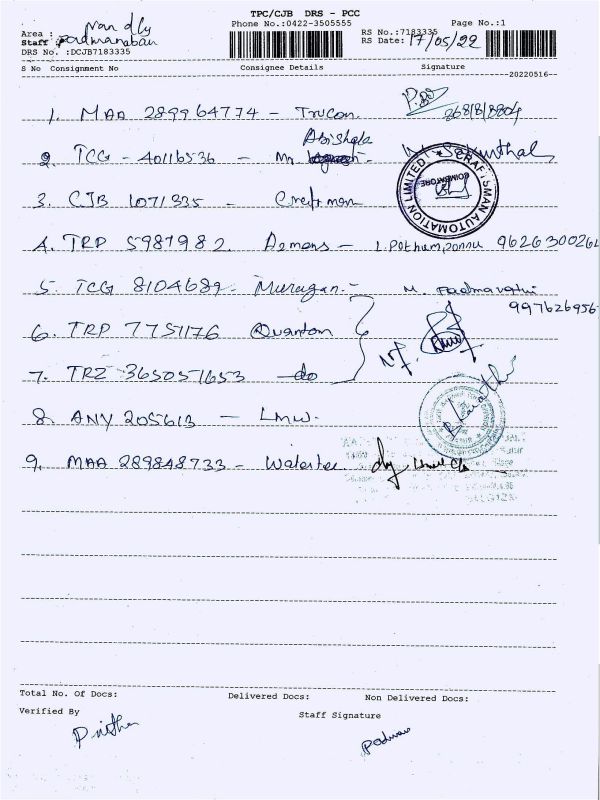 TPC/CJB DRS - PCC
Phone No.:0422-3505555 Page No.:1
Area : Van dly
Staff : Padmanaban
RS No.:7183335
RS Date: 17/05/22
DRS No. :DCJB7183335
S No Consignment No Consignee Details Signature
--20220516--
1. MAA 289964774 - Trucon
2. TCG - 40116536 - Mr. Abishek
3. CJB 1071335 - Craftman
CRAFTSMAN AUTOMATION LIMITED
COIMBATORE
4. TRP 5987982 Demans -
5. TCG 8104689 - Murugan - M. Padmavathi
6. TRP 7751176 Quanton
7. TRZ 365051653 do
8. ANY 205613 - LMW.
9. MAA 289848733 -
Total No. Of Docs: Delivered Docs: Non Delivered Docs:
Verified By Staff Signature